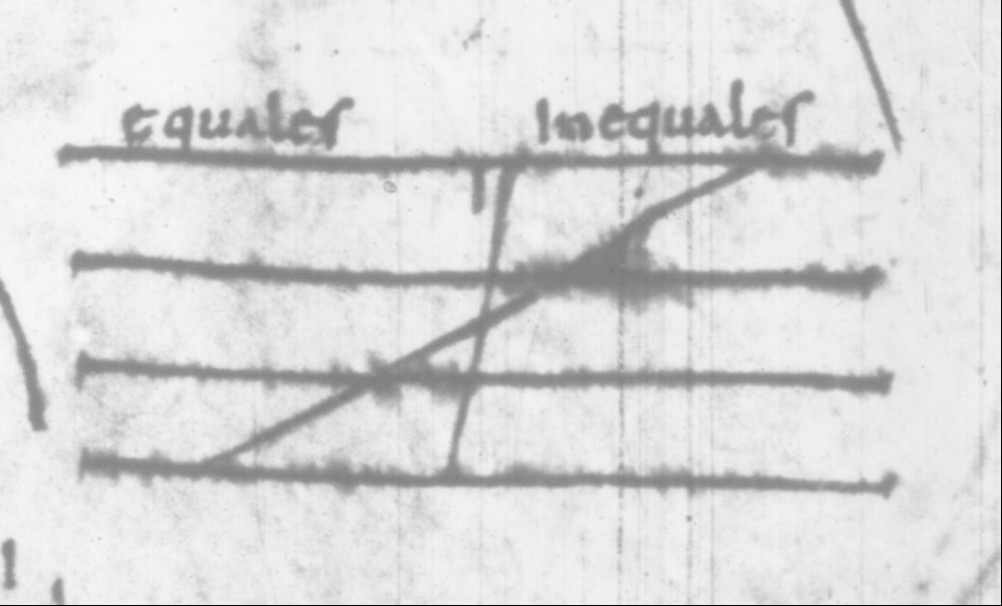 equales inequales